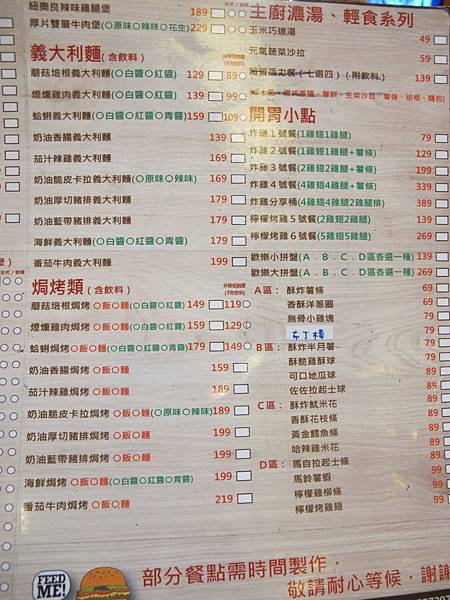 紐奧良辣味雞腿堡 189
厚片雙層牛肉堡(○原味○辣味○花生) 229
義大利麵(含飲料)
蘑菇培根義大利麵(○白醬○紅醬) 129 89
煙燻雞肉義大利麵(○白醬○紅醬) 139 99
蛤蜊義大利麵(○白醬○紅醬○青醬) 159 109
奶油香腸義大利麵 139
茄汁辣雞義大利麵 169
奶油脆皮卡拉義大利麵(○原味○辣味) 169
奶油厚切豬排義大利麵 179
奶油藍帶豬排義大利麵 179
海鮮義大利麵(○白醬○紅醬○青醬) 179
番茄牛肉義大利麵 199
焗烤類(含飲料)
蘑菇培根焗烤○飯○麵(○白醬○紅醬) 149 119
煙燻雞肉焗烤○飯○麵(○白醬○紅醬) 159 129
蛤蜊焗烤○飯○麵(○白醬○紅醬○青醬) 179 149
奶油香腸焗烤○飯○麵 159
茄汁辣雞焗烤○飯○麵 189
奶油脆皮卡拉焗烤○飯○麵(○原味○辣味) 189
奶油厚切豬排焗烤○飯○麵 199
奶油藍帶豬排焗烤○飯○麵 199
海鮮焗烤○飯○麵(○白醬○紅醬○青醬) 199
番茄牛肉焗烤○飯○麵 219
主廚濃湯、輕食系列
玉米巧達湯 49
元氣蔬菜沙拉 59
活力餐(七選四)(附飲料) 139
開胃小點
炸雞1號餐(1雞翅1雞腿) 79
炸雞2號餐(1雞翅1雞腿+薯條) 139
炸雞3號餐(2雞翅2雞腿+薯條) 199
炸雞4號餐(4雞翅4雞腿+薯條) 339
炸雞分享桶(4雞翅4雞腿2雞腿排) 389
檸檬烤雞5號餐(2雞翅2雞腿) 139
檸檬烤雞6號餐(5雞翅5雞腿) 269
歡樂小拼盤(A.B.C.D區各選一種) 139
歡樂大拼盤(A.B.C.D區各選一種) 269
A區： 酥炸薯條 69
香酥洋蔥圈 69
無骨小雞塊 79
布丁樓 79
B區： 酥炸半月薯 79
酥脆雞酥球 79
可口地瓜球 79
佐佐拉起士球 89
C區： 酥炸魷米花 89
香酥花枝條 89
黃金鱈魚條 89
哈辣雞米花 89
D區： 馬自拉起士條 99
馬鈴薯蝦 99
檸檬雞柳條 99
檸檬烤雞翅 99
部分餐點需時間製作，
敬請耐心等候，謝謝
FEED ME!